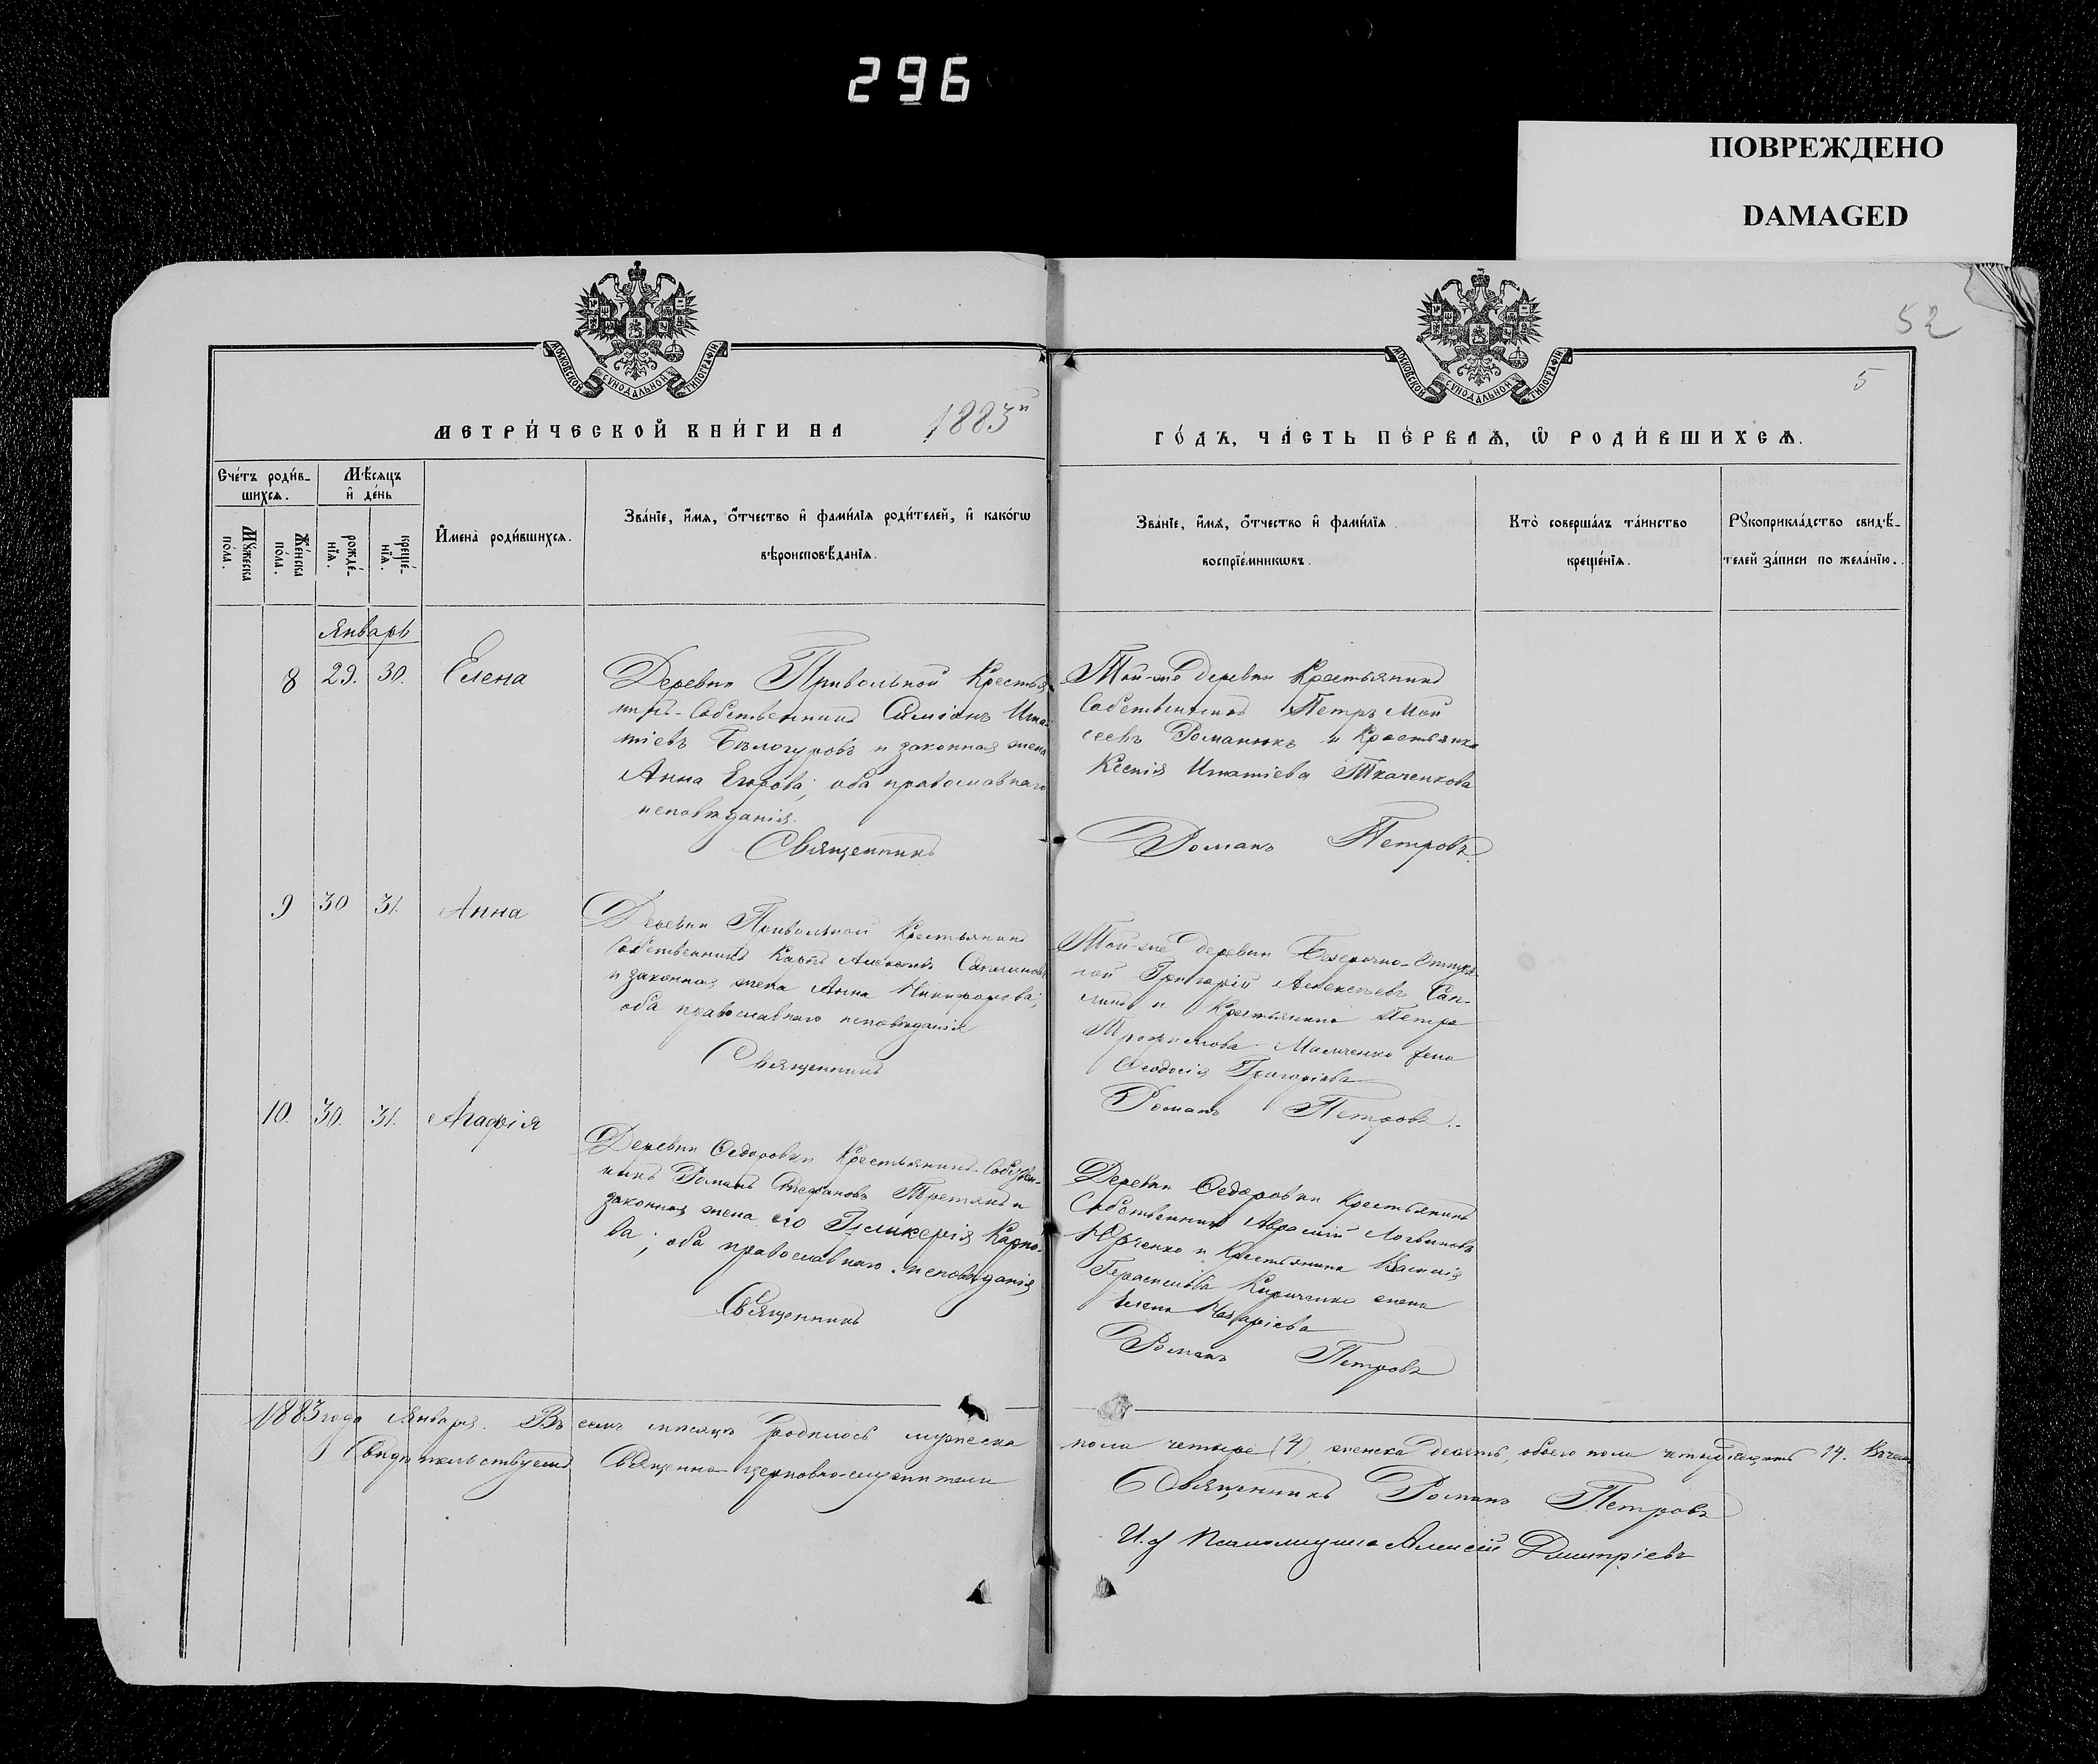 296
ПОВРЕЖДЕНО
DAMAGED
52
5
МОСКОВСКОЙ СУНОДАЛЬНОЙ ТИПОГРАФІИ
МОСКОВСКОЙ СУНОДАЛЬНОЙ ТИПОГРАФІИ
МЕТРИ́ЧЕСКОЙ КНИ́ГИ НА 1883й
ГО́ДЪ, ЧА́СТЬ ПЕ́РВАѦ, Ѡ҆ РОДИ́ВШИХСѦ.
Сче́тъ роди́в-
шихсѧ.
Мѣ́сѧцъ
и҆ де́нь
Мꙋ́жеска
по́ла.
Же́нска
по́ла.
рожде́-
нїѧ.
креще́-
нїѧ.
И҆мена̀ роди́вшихсѧ.
Зва́нїе, и҆́мѧ, ѻ҆́тчество и҆ фами́лїѧ роди́телей, и҆ како́гѡ
вѣроисповѣ́данїѧ.
Зва́нїе, и҆́мѧ, ѻ҆́тчество и҆ фами́лїѧ
воспрїе́мникѡвъ.
Кто̀ соверша́лъ та́инство
креще́нїѧ.
Рꙋкоприкла́дство свидѣ́-
телей за́писи по жела́нїю.
Январь
8 29. 30. Елена
Деревни Привольной Крестья
нинъ-Собственникъ Симіонъ Игна-
тіевъ Бѣлогуровъ и законная жена
Анна Егорова; оба православнаго
исповѣданія.
Священникъ
Той-же деревни Крестьянинъ
Собственникъ Петръ Мой
сеевъ Романюкъ и Крестьянка
Ксенія Игнатіева Ткаченкова
Романъ Петровъ.
9 30 31. Анна
Деревни Привольной Крестьянинъ
Собственникъ Карпъ Алексеевъ
и законная жена Анна Никифорова;
оба православнаго исповѣданія
Священникъ
Той-же деревни Безсрочно-Отпуск
ной Григорій Алексеевъ Сап-
и Крестьянина Петра
Мальченко жена
Ѳеодосія Григоріева
Романъ Петровъ.
10. 30. 31. Агафія
Деревни Ѳедоровки Крестьянинъ-Собствен-
никъ Романъ Стефановъ Третякъ и
законная жена его Гликерія Карпо-
ва; оба православнаго исповѣданія
Священникъ
Деревни Ѳедоровки Крестьянинъ
Собственникъ Логвиновъ
Юрченко и Крестьянина Василія
Герасимова Кириченко жена
Елена Назаріева
Романъ Петровъ
1883 года Января. Въ семъ мѣсяцѣ родилось мужеска
пола четыре (4), женска десять, обоего пола четырнадцать 14. Въ чемъ
Свидѣтельствуемъ Священно-церковно-служители
Священникъ Романъ Петровъ
И. д Псаломщика Алексій Дмитріевъ